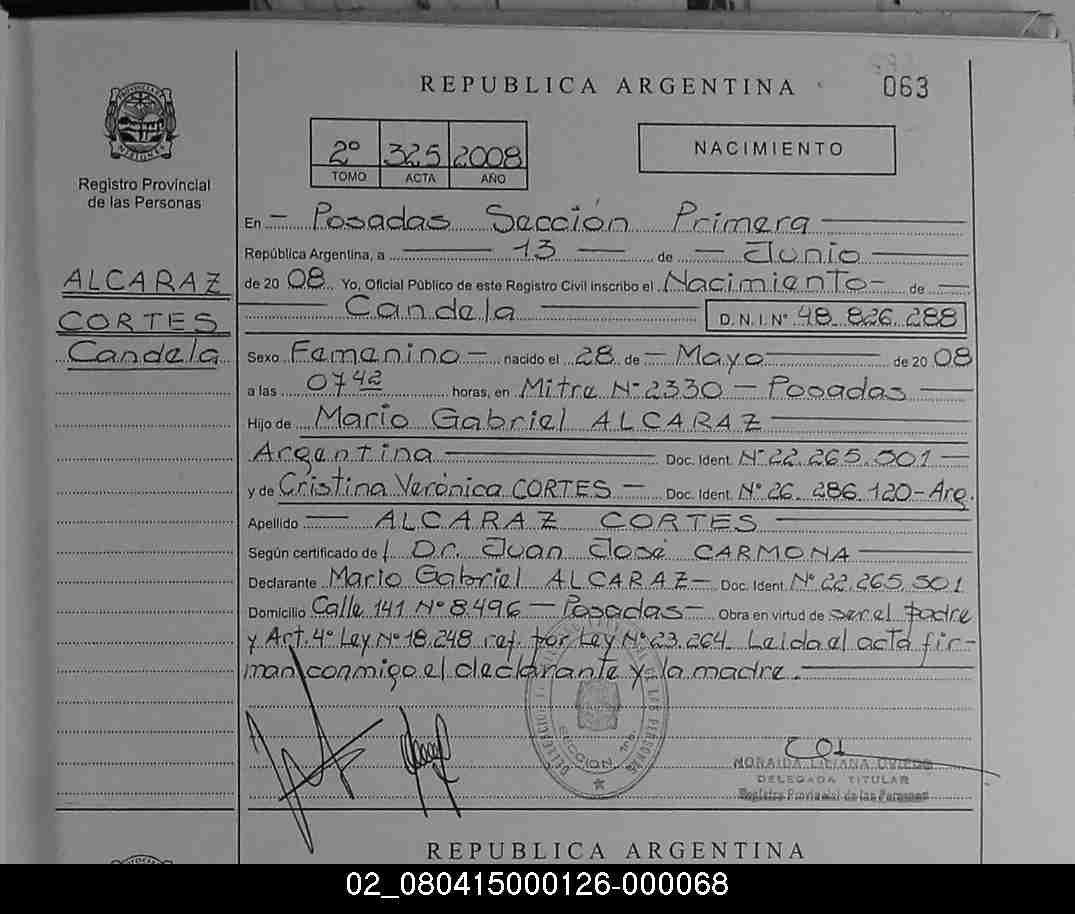 REPUBLICA ARGENTINA
063
PROVINCIA DE MISIONES
Registro Provincial
de las Personas
2º 325 2008
TOMO ACTA AÑO
NACIMIENTO
ALCARAZ
CORTES
Candela
En — Posadas Sección Primera
República Argentina, a 13 de — Junio
de 20 08 Yo, Oficial Público de este Registro Civil inscribo el Nacimiento — de
Candela D.N.I. Nº 48.826.288
Sexo Femenino — nacido el 28 de — Mayo de 20 08
a las 0742 horas, en Mitre Nº 2330 — Posadas
Hijo de Mario Gabriel ALCARAZ
Argentina Doc. Ident. Nº 22.265.501
y de Cristina Verónica CORTES — Doc. Ident. Nº 26.286.120 - Arg.
Apellido — ALCARAZ CORTES
Según certificado de Dr. Juan José CARMONA
Declarante Mario Gabriel ALCARAZ — Doc. Ident. Nº 22.265.501
Domicilio Calle 141 Nº 8.496 — Posadas — Obra en virtud de ser el padre
y Art. 4º Ley Nº 18.248 ref. por Ley Nº 23.264. Leída el acta fir-
man conmigo el declarante y la madre.
SECCION 1ra.
NORAIDA LILIANA OVIEDO
DELEGADA TITULAR
Registro Provincial de las Personas
REPUBLICA ARGENTINA
02_080415000126-000068